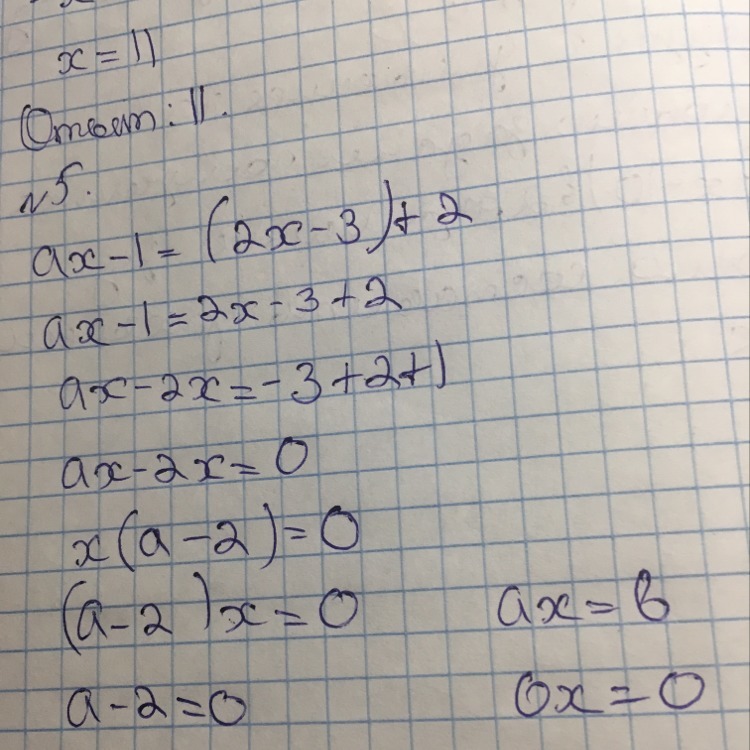 x = 11
Ответ: 11.
№5.
ax - 1 = (2x - 3) + 2
ax - 1 = 2x - 3 + 2
ax - 2x = -3 + 2 + 1
ax - 2x = 0
x(a - 2) = 0
(a - 2)x = 0
a - 2 = 0
ax = b
0x = 0